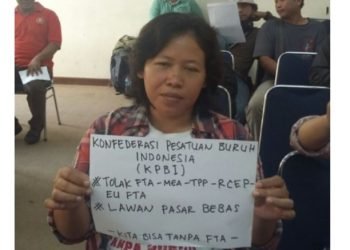 KONFEDERASI PESATUAN BURUH
INDONESIA
(KPBI)
# TOLAK FTA - MEA - TPP - RCEP -
EU FTA
# LAWAN PASAR BEBAS
- KITA BISA TANPA FTA -
TANPA